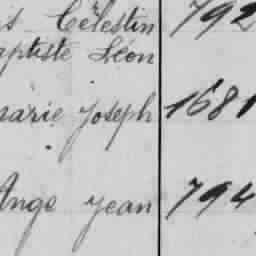 is Célestin 792
aptiste Léon
marie Joseph 1681
Ange yean 794